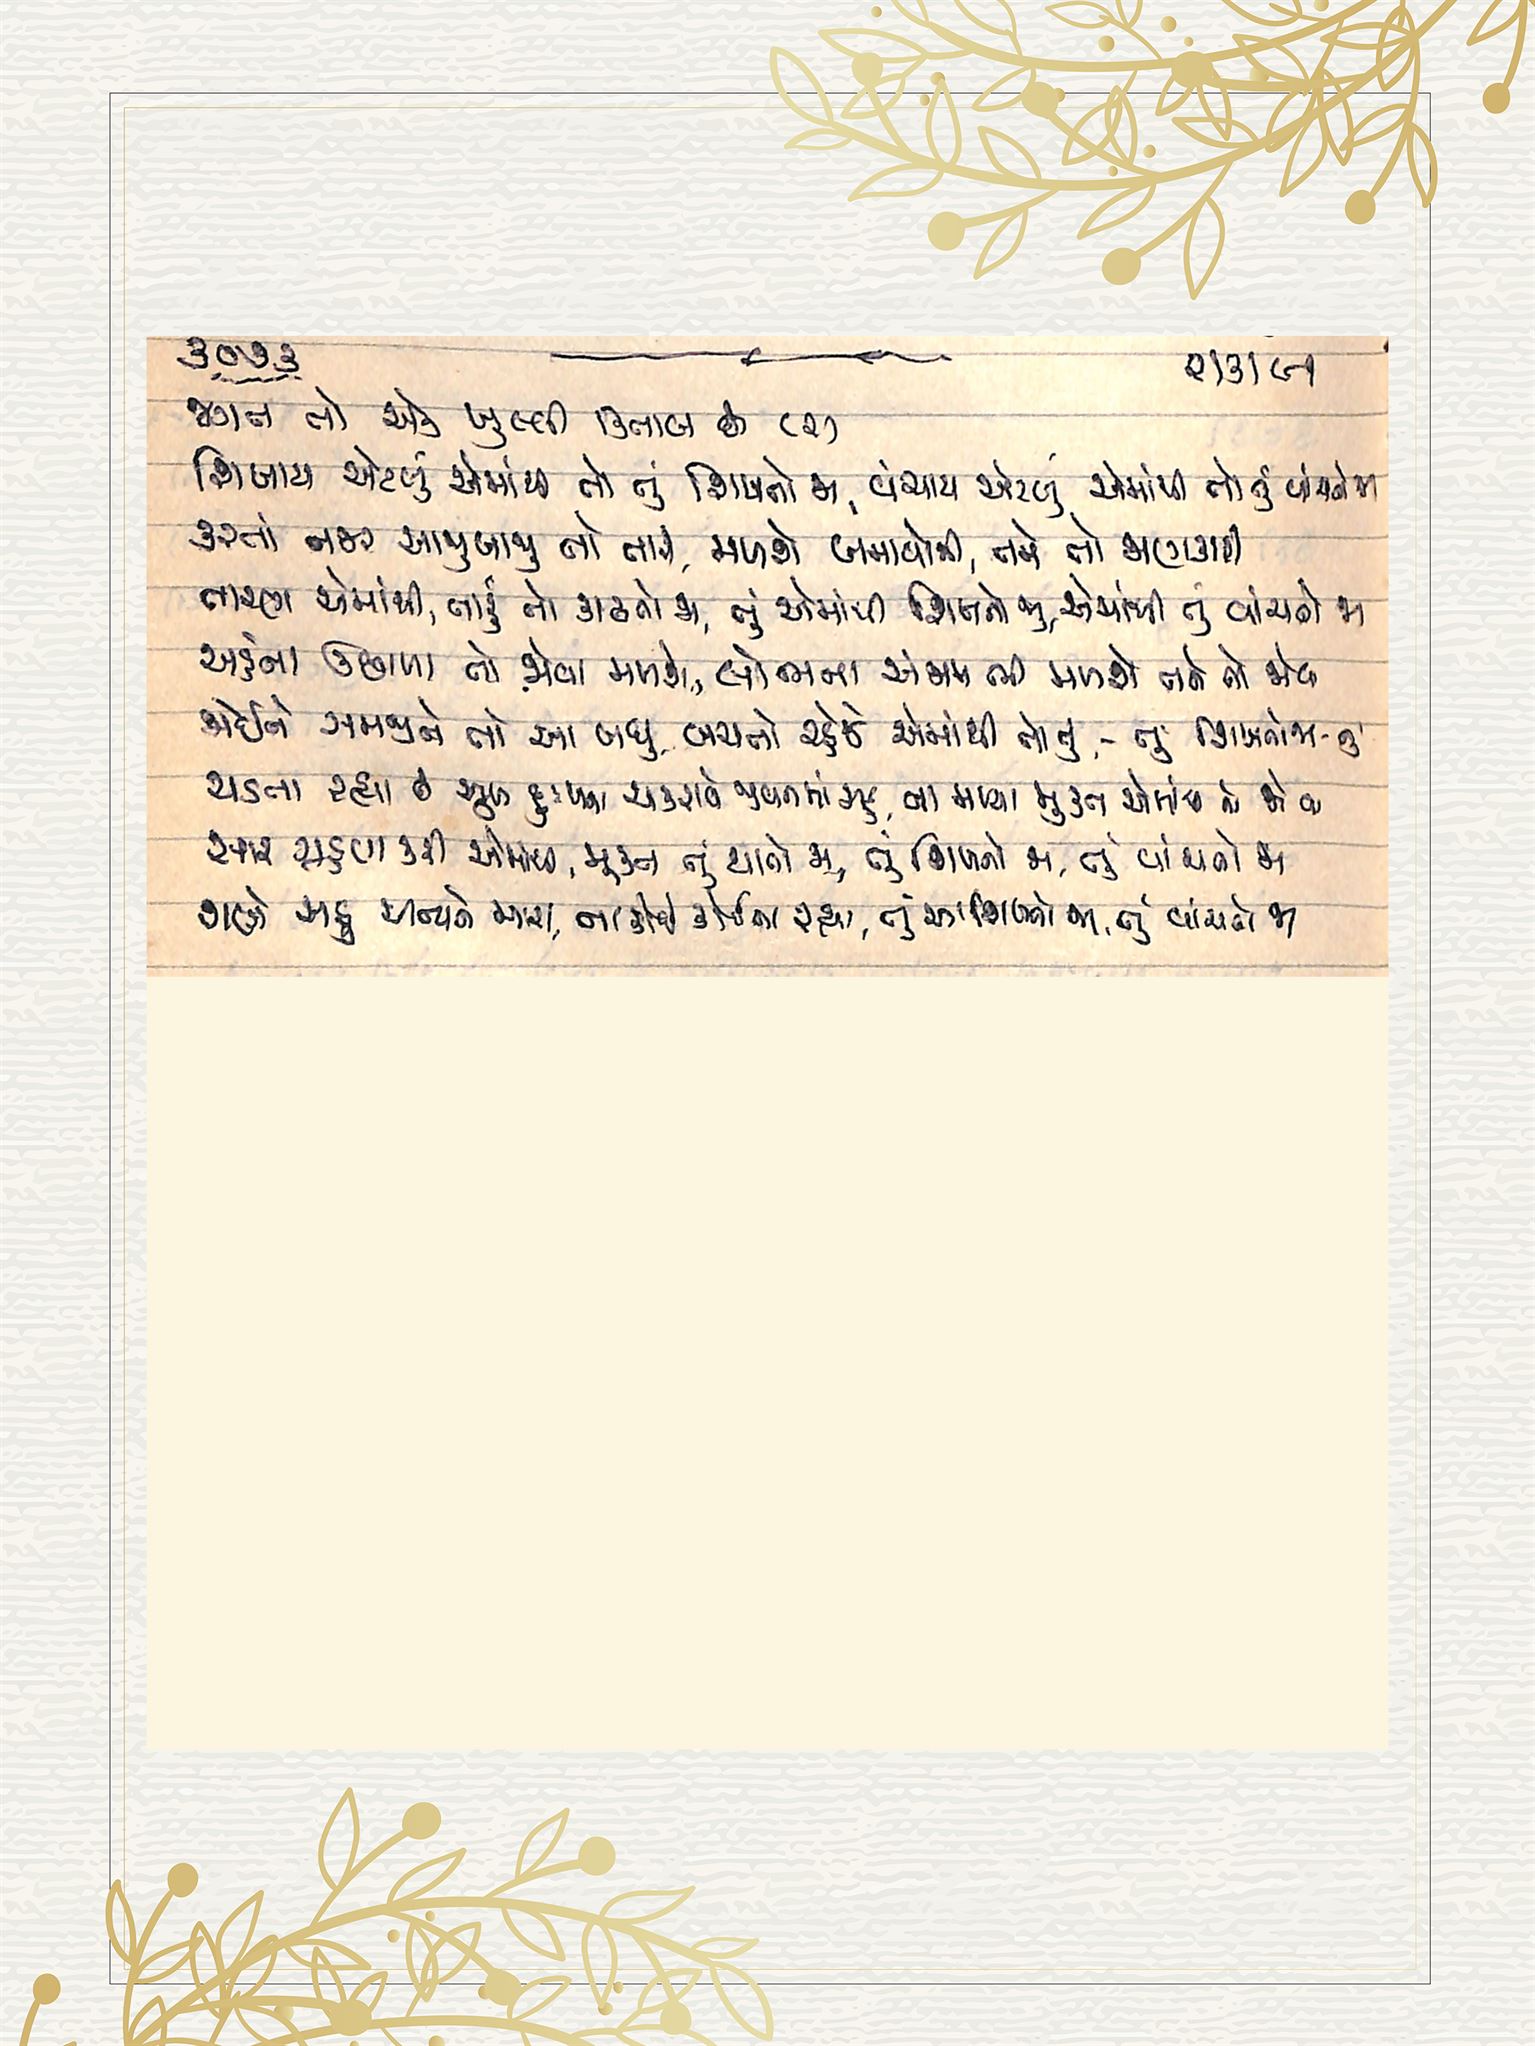 ૩૦૭૩ ૨/૩/૯૧
જગત તો એક ખુલ્લી કિતાબ છે (૨)
શિખાય એટલું એમાંથી તો તું શિખતો જા, વંચાય એટલું એમાંથી તો તું વાંચતો જા
કરતાં નજર આજુબાજુ તો તારી, મળશે નમે તો જાણકારી
તારણ એમાંથી, તારું તો કાઢતો જા, તું એમાંથી શિખતો જા, એમાંથી તું વાંચતો જા
અહંના ઉછાળા તો જોવા મળશે, લોભના અંજામ ભી મળશે તને તો જોવા
જોઈને સમજીને તો આ બધું, બચતો રહેજે એમાંથી તો તું - તું શિખતો જા - તું
ચડતા રહ્યા છે સુખ દુઃખના ચકરાવે જીવનમાં સહુ, ના મળ્યા મુક્ત એમાંથી તો જોવા
કરી એમાંથી, મુક્ત તું થાતો જા, તું શિખતો જા, તું વાંચતો જા
ગણો સહુ અન્યને મારા, ના કોઈ કોઈના રહ્યા, તું આ શિખતો જા, તું વાંચતો જા